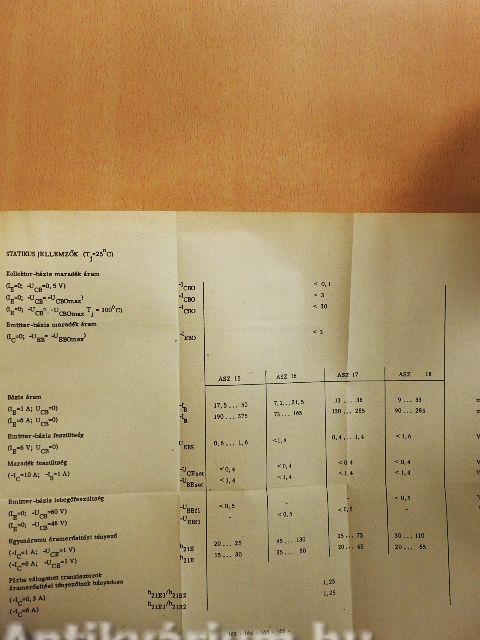 STATIKUS JELLEMZŐK (Tj=25°C)
Kollektor-bázis maradék áram
(IE=0; -UCB=0,5 V) -ICBO < 0,1
(IE=0; -UCB= -UCBOmax) -ICBO < 3
(IE=0; -UCB= -UCBOmax Tj = 100°C) -ICBO < 30
Emitter-bázis maradék áram
(IC=0; -UEB= -UEBOmax) -IEBO < 3
ASZ 15 ASZ 16 ASZ 17 ASZ 18
Bázis áram
(IE=1 A; UCB=0) -IB 17,5... 50 7,2...21,5 13 ... 38 9 ... 33
(IE=6 A; UCB=0) -IB 190 ... 375 75 ... 165 130 ... 285 90 ... 285
Emitter-bázis feszültség
(IE=6 V; UCB=0) UEBS 0,6 ... 1,6 <1,4 0,4 ... 1,4 <1,6
Maradék feszültség
(-IC=10 A; -IB=1 A) -UCEsat <0,4 <0,4 <0,4 <0,4
-UBEsat <1,4 <1,4 <1,4 <1,4
Emitter-bázis lebegőfeszültség
(IE=0; -UCB=60 V) -UEBfl <0,5 - - <0,5
(IE=0; -UCB=48 V) -UEBfl - <0,5 <0,5 -
Egyenáramú áramerősítési tényező
(-IC=1 A; -UCE=1 V) h21E 20 ... 25 45 ... 130 25 ... 75 30 ... 110
(-IC=6 A; -UCE=1 V) h21E 15 ... 30 35 ... 80 20 ... 45 20 ... 65
Párba válogatott tranzisztorok
áramerősítési tényezőinek hányadosa
(-IC=0,3 A) h21E1/h21E2 1,25
(-IC=6 A) h21E1/h21E2 1,25
- 163 - 164 - 165 - 166 -
Antikvárium.hu